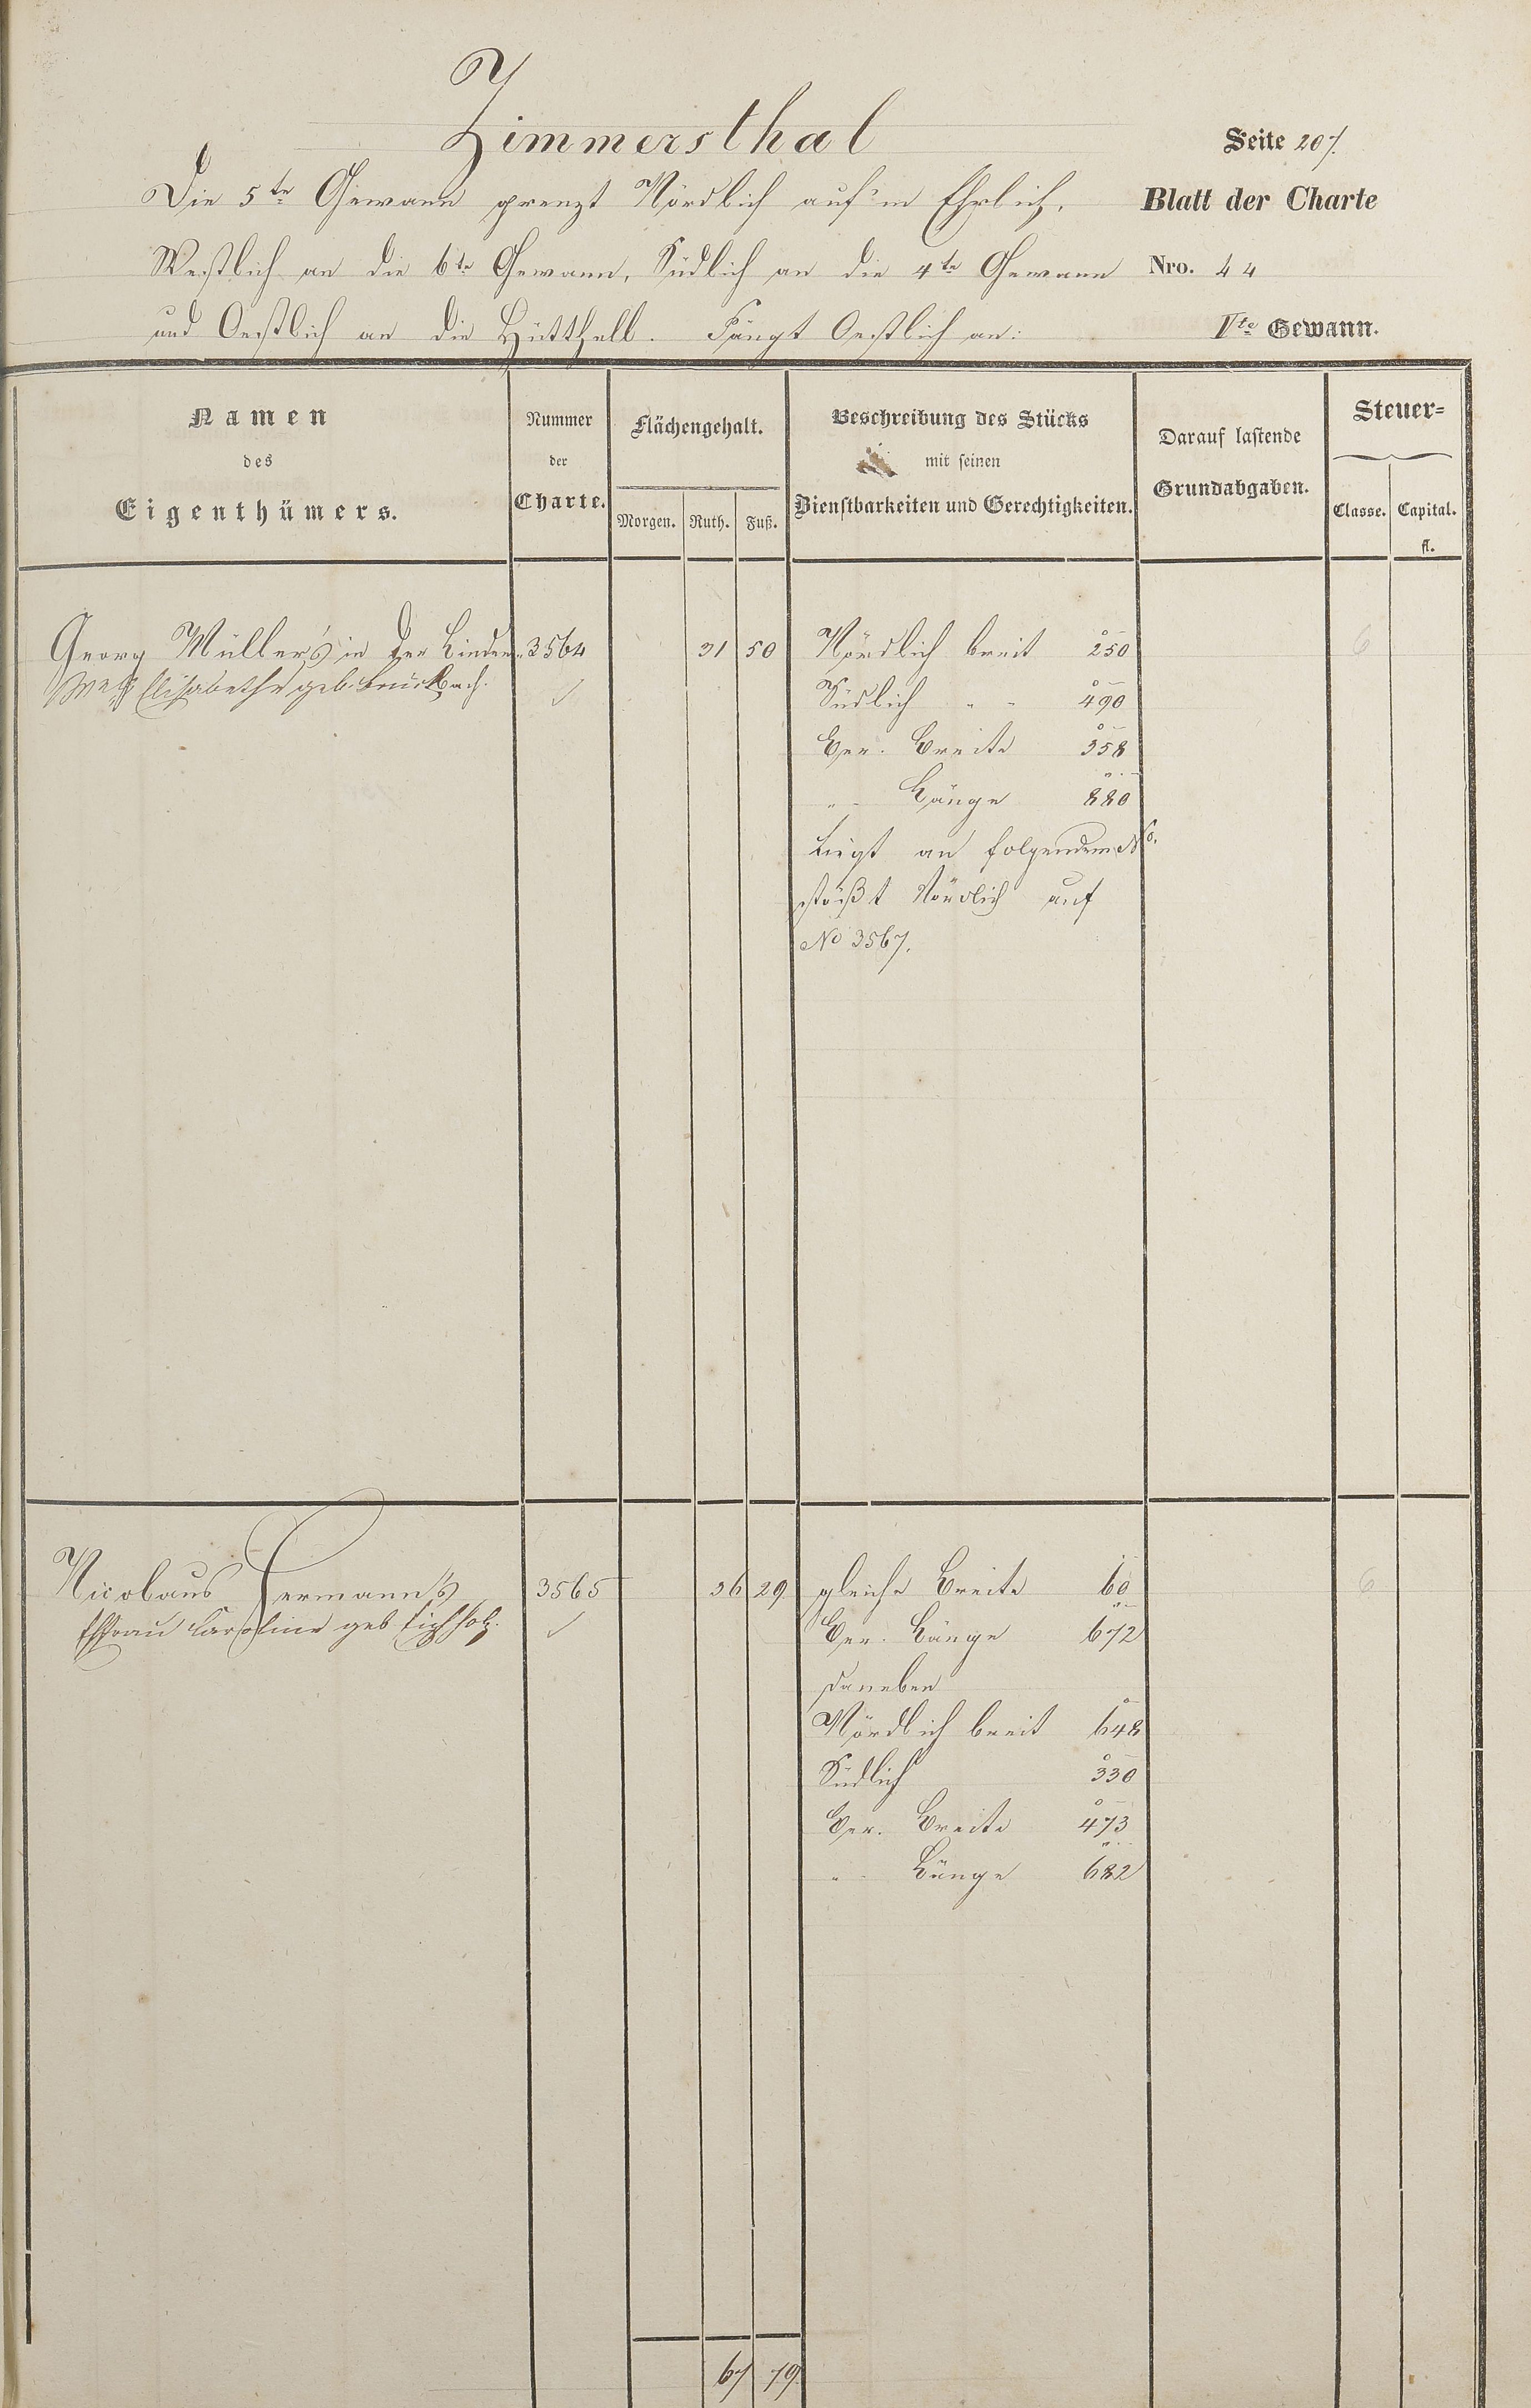 Zimmersthal
Seite 207.
Die 5te Gewann grenzt Nördlich auf'm Ehrlich,
Blatt der Charte
Westlich an die 6te Gewann, Südlich an die 4te Gewann
Nro. 44
und Oestlich an die Hütthell. Fängt Oestlich an:
Vte Gewann.
Namen
des
Eigenthümers.
Nummer
der
Charte.
Flächengehalt.
Morgen. Ruth. Fuß.
Beschreibung des Stücks
mit seinen
Dienstbarkeiten und Gerechtigkeiten.
Darauf lastende
Grundabgaben.
Steuer=
Classe. Capital.
fl.
Georg Müller's in der Linden 3564 31 50 Nördlich breit 250 6
Elisabetha geb.
Südlich " " 490
Ger. Breite 358
" Länge 880
Liegt an folgendem No.
stößt Nördlich auf
No 3567.
Nicolaus Hermann's 3565 36 29 gleiche Breite 60 6
Ehfrau Caroline geb Eichholz.
Ger. Länge 672
daneben
Nördlich breit 648
Südlich 330
Ger. Breite 473
" Länge 682
67 79